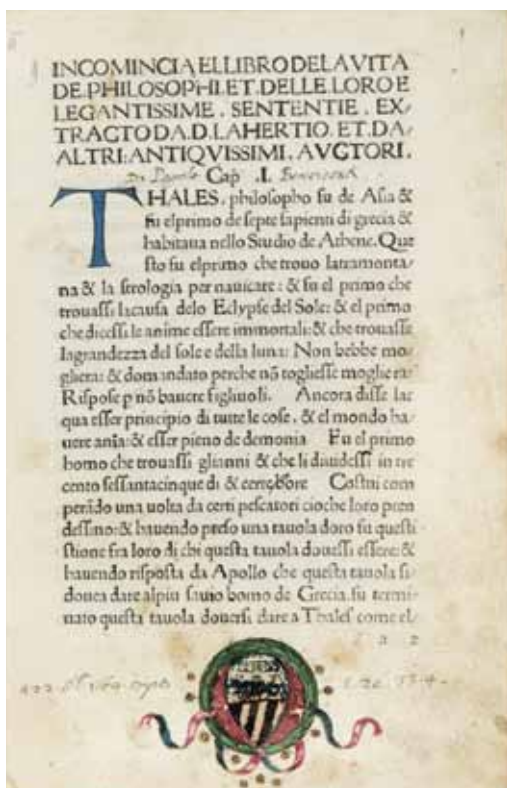 INCOMINCIA EL LIBRO DE LA VITA
DE PHILOSOPHI.ET.DELLE.LORO E
LEGANTISSIME. SENTENTIE. EX/
TRACTO DA.D.LAHERTIO.ET.DA/
ALTRI:ANTIQVISSIMI.AVCTORI.
Cap .I.
THALES. philosopho fu de Asia &
fu elprimo de septe sapienti di grecia &
habitaua nello Studio de Athene. Que
sto fu elprimo che trouo latramonta/
na & la strologia per nauicare: & fu el primo che
trouassi lacausa delo Eclypse del Sole: & el primo
che dicessi le anime essere immortali: & che trouasse
lagrandezza del sole e della luna: Non hebbe mo/
gliera: & domandato perche nõ togliesse mogliera:
Rispose p nõ hauere figliuoli. Ancora disse lac
qua esser principio di tutte le cose. & el mondo ha/
uere aniã: & esser pieno de demonia Fu el primo
homo che trouassi glianni & che li diuidessi in tre
cento sessantacinque di & Costui com
perãdo una uolta da certi pescatori cioche loro pren
dessino: & hauendo preso una tauola doro fu questi
stione fra loro di chi questa tauola douessi essere: &
hauendo risposta da Apollo che questa tauola si
douea dare alpiu sauio homo de Grecia. fu termi/
nato questa tauola douersi dare a Thales come el/
a 2